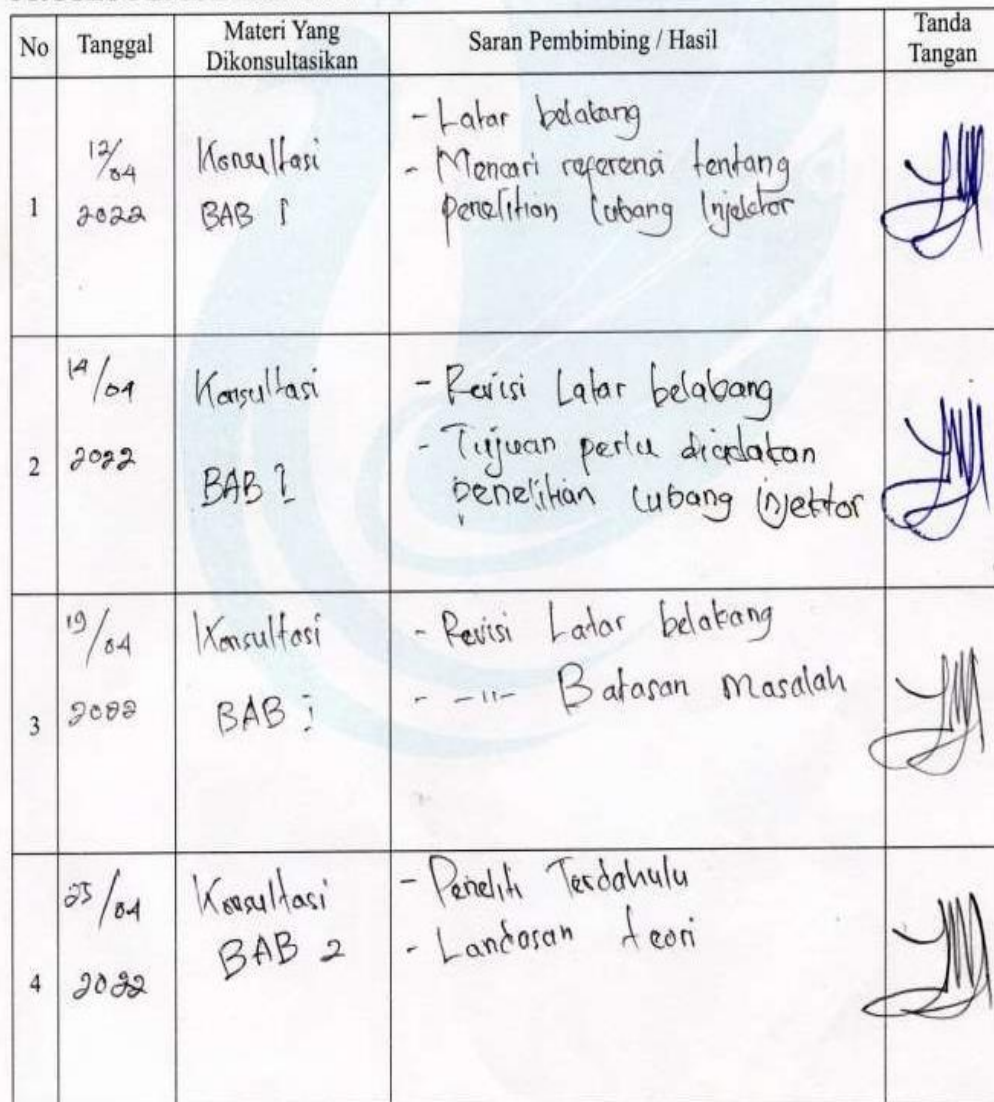 No
Tanggal
Materi Yang
Dikonsultasikan
Saran Pembimbing / Hasil
Tanda
Tangan
1
12/04
2022
Konsultasi
BAB I
- Latar belakang
- Mencari referensi tentang
penelitian lubang Injektor
2
14/04
2022
Konsultasi
BAB I
- Revisi Latar belakang
- Tujuan perlu diadakan
penelitian lubang injektor
3
19/04
2022
Konsultasi
BAB I
- Revisi Latar belakang
- -"- Batasan Masalah
4
25/04
2022
Konsultasi
BAB 2
- Peneliti Terdahulu
- Landasan teori